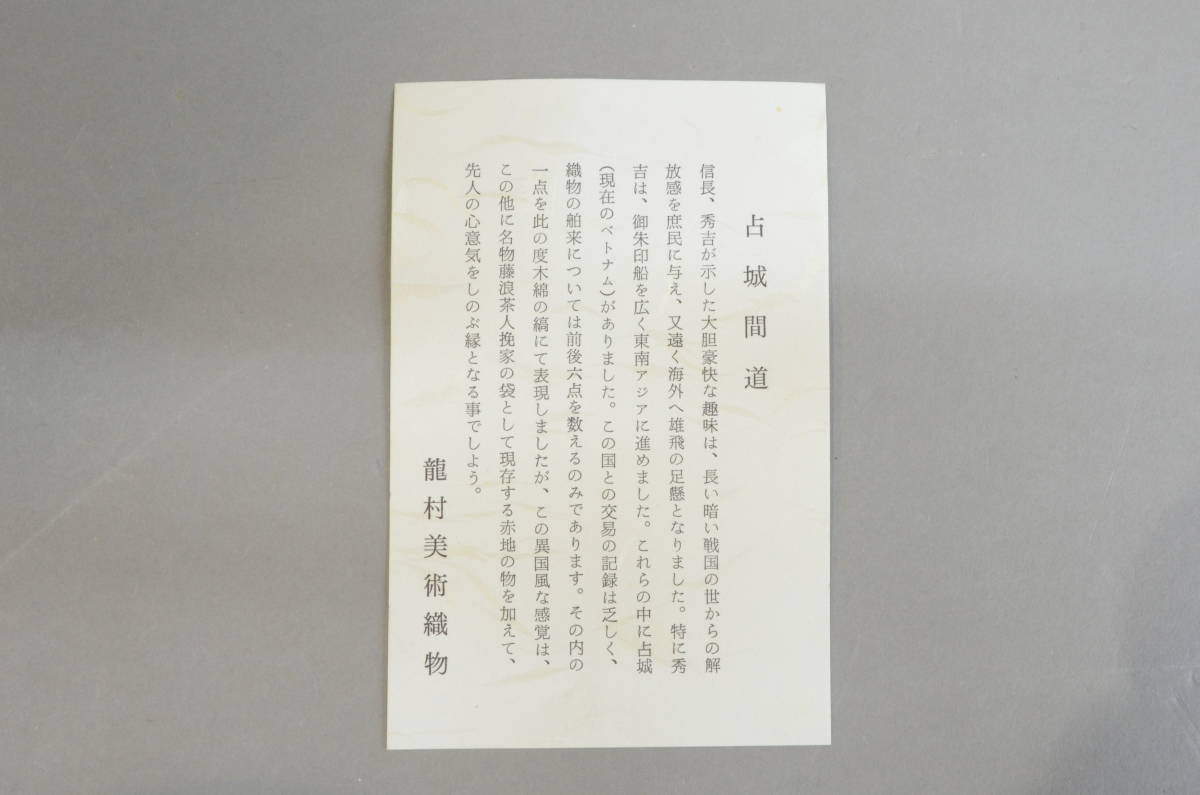 占城間道
信長、秀吉が示した大胆豪快な趣味は、長い暗い戦国の世からの解
放感を庶民に与え、又遠く海外へ雄飛の足懸となりました。特に秀
吉は、御朱印船を広く東南アジアに進めました。これらの中に占城
(現在のベトナム)がありました。この国との交易の記録は乏しく、
織物の舶来については前後六点を数えるのみであります。その内の
一点を此の度木綿の縞にて表現しましたが、この異国風な感覚は、
この他に名物藤浪茶人挽家の袋として現存する赤地の物を加えて、
先人の心意気をしのぶ縁となる事でしよう。
龍村美術織物